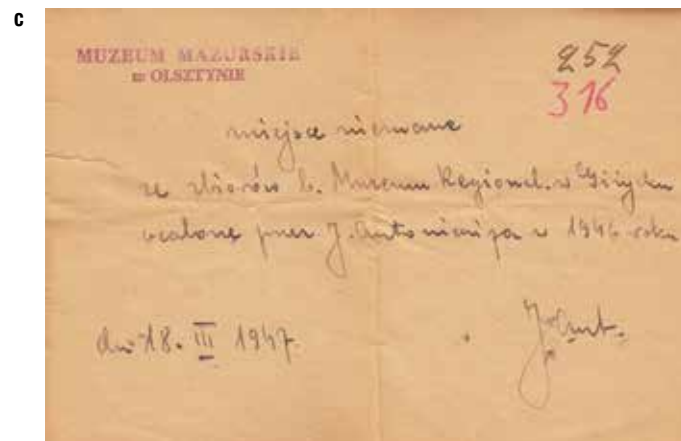 c
MUZEUM MAZURSKIE
w OLSZTYNIE
252
316
miejsce nieznane
ze zbiorów b. Museum Regional. w Giżycku
ocalone przez J. Antoniewicza w 1946 roku
dn. 18. III 1947.
J. Ant.